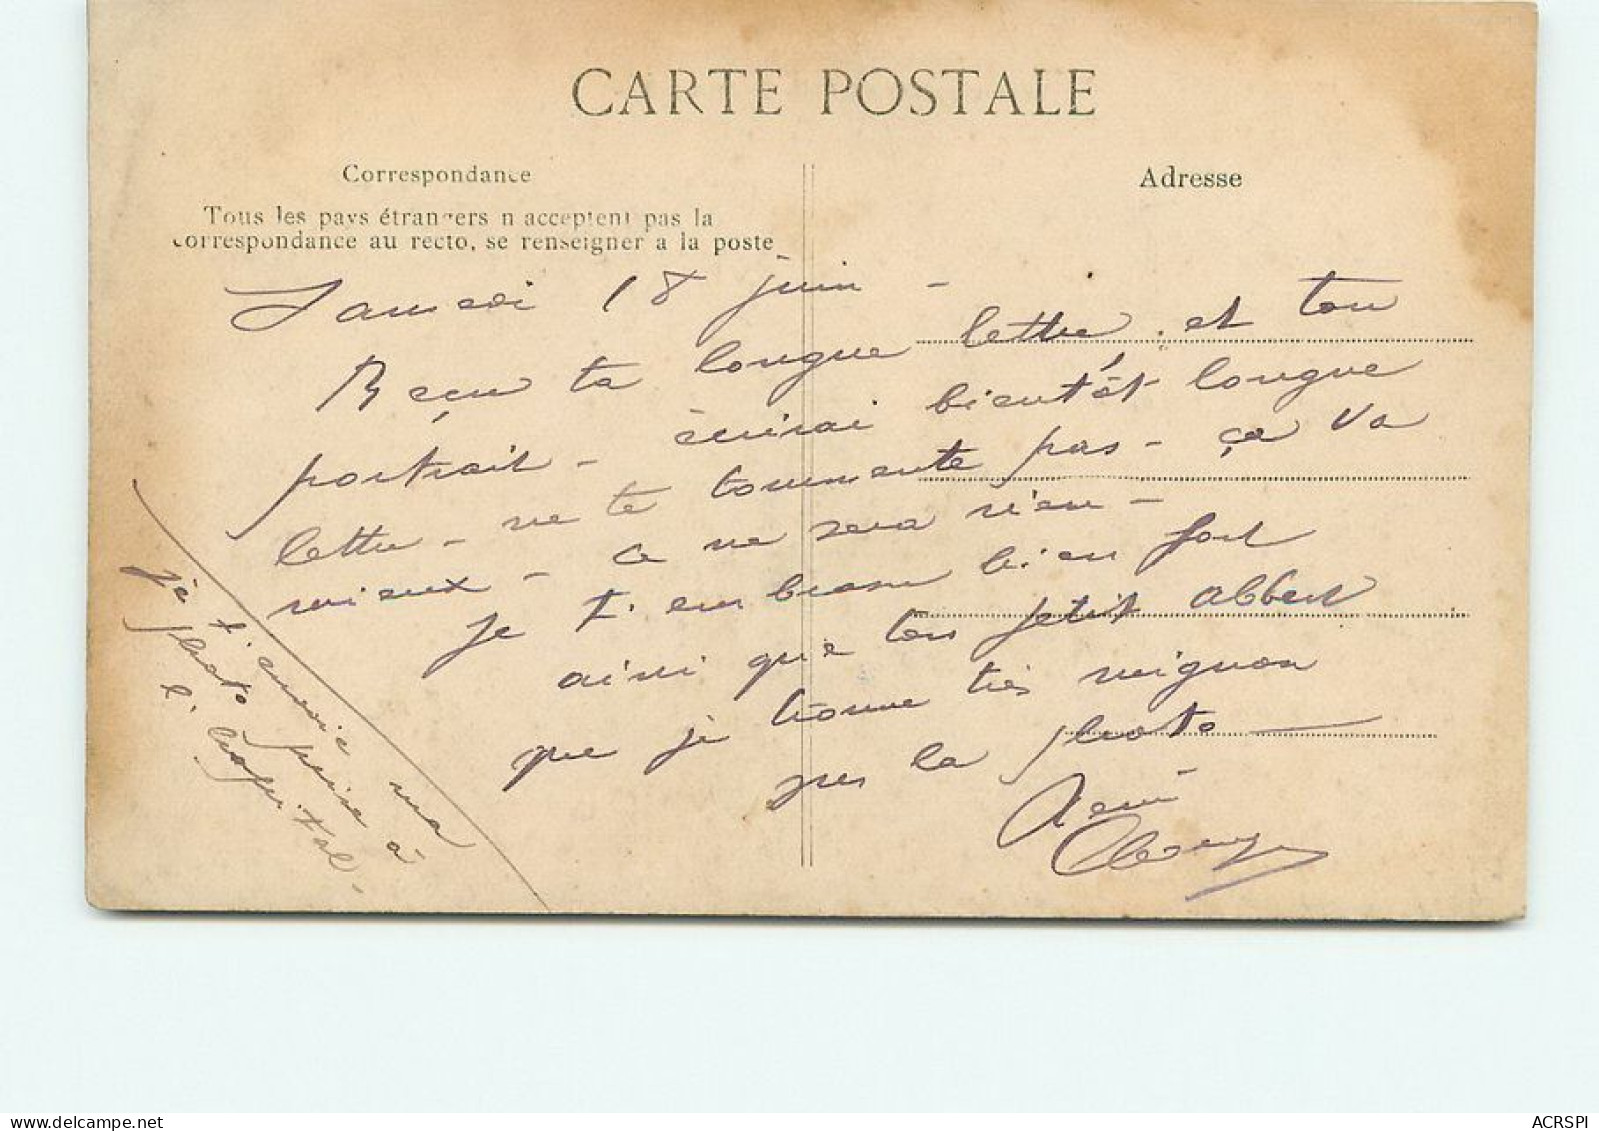 CARTE POSTALE
Correspondance
Adresse
Tous les pays étrangers n'acceptent pas la
correspondance au recto, se renseigner à la poste
Samedi 18 juin -
Reçu ta longue lettre et ton
portrait - écrirai bientôt longue
lettre - ne te tourmente pas - ça va
mieux - ce ne sera rien -
Je t'embrasse bien fort
ainsi que ton petit Albert
que je trouve très mignon
sur la photo
René
je t'envoie ma
photo prise à
l'hopital -
ACRSPI